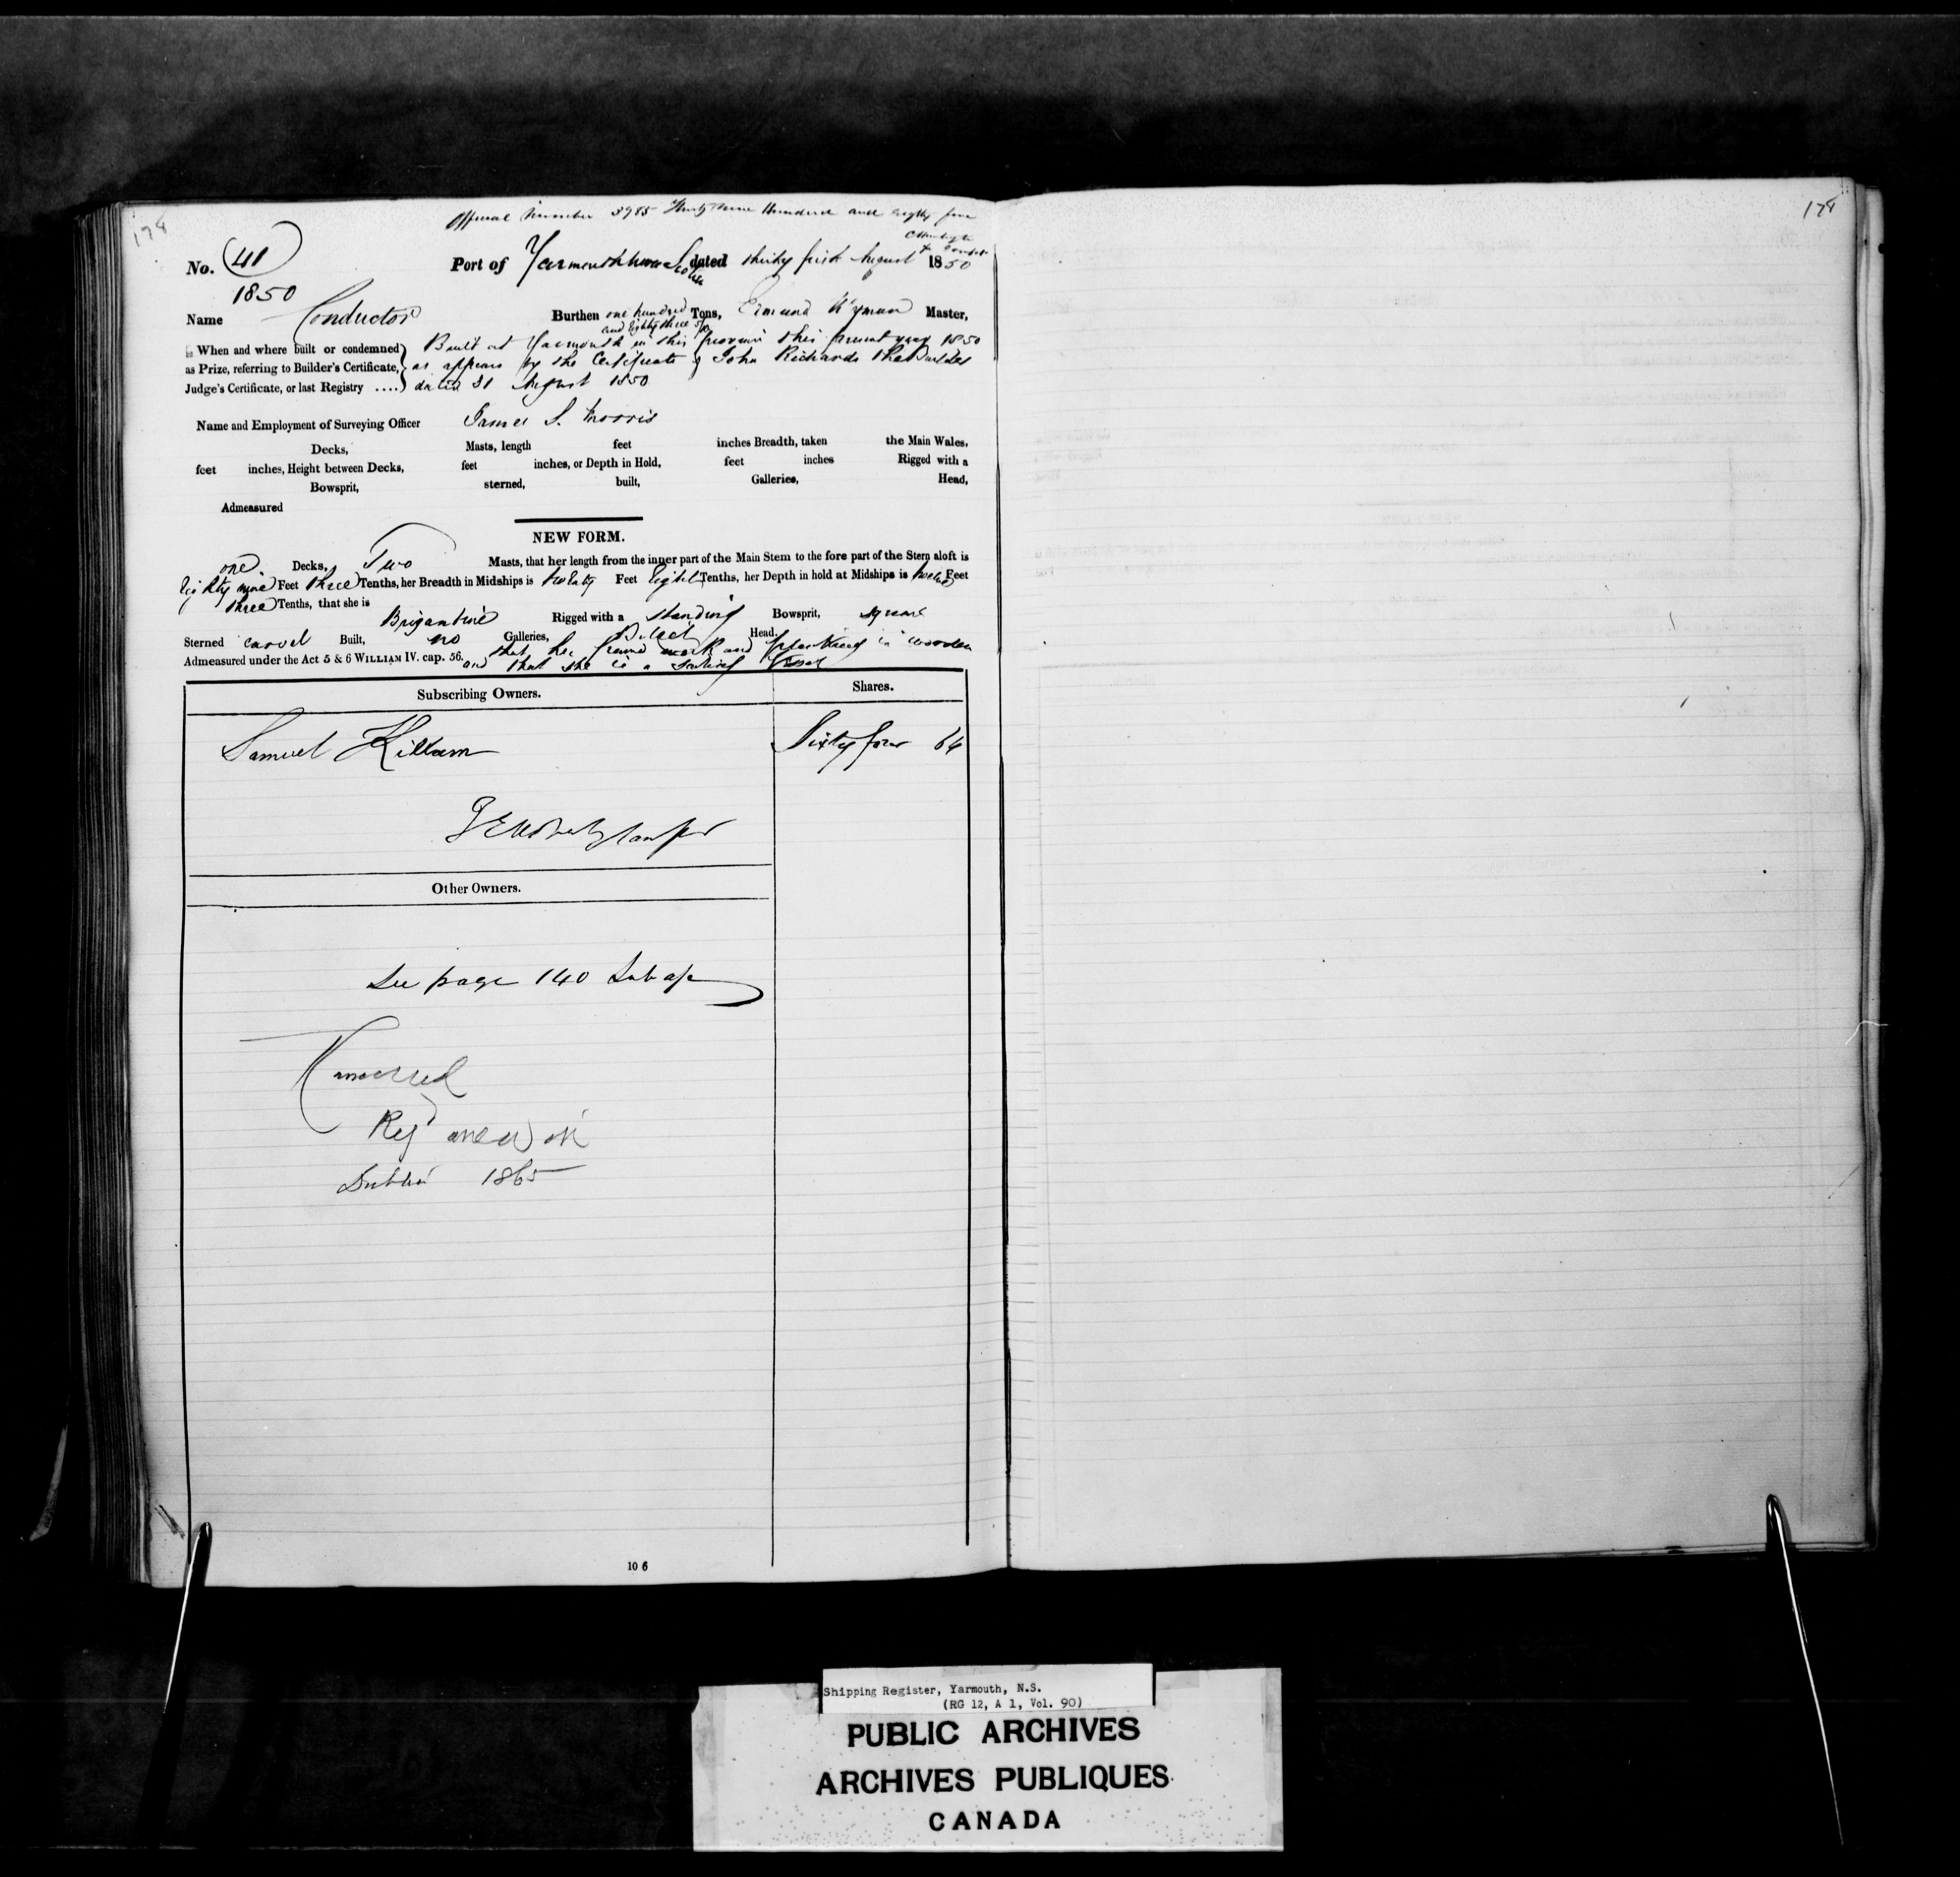 178
Official Number 3985 Thirty nine Hundred and eighty five
No. 41 Port of Yarmouth Nova Scotia dated thirty first August 1850
1850
Name Conductor Burthen one hundred Tons, Edmund Wyman Master,
and Eighty three
When and where built or condemned Built at Yarmouth in this province this present year 1850
as Prize, referring to Builder's Certificate, as appears by the Certificate of John Richards the Builder
Judge's Certificate, or last Registry .... dated 31 August 1850
Name and Employment of Surveying Officer James S. Morris
Decks, Masts, length feet inches Breadth, taken the Main Wales,
feet inches, Height between Decks, feet inches, or Depth in Hold, feet inches Rigged with a
Bowsprit, sterned, built, Galleries, Head,
Admeasured
NEW FORM.
one Decks, Two Masts, that her length from the inner part of the Main Stem to the fore part of the Stern aloft is
Eighty nine Feet three Tenths, her Breadth in Midships is twenty Feet Eight Tenths, her Depth in hold at Midships is twelve Feet
three Tenths, that she is Brigantine Rigged with a standing Bowsprit, square
Sterned carvel Built, no Galleries, Billet Head.
Admeasured under the Act 5 & 6 WILLIAM IV. cap. 56. that her frame work and planking is wooden
and that she is a sailing Vessel
Subscribing Owners. Shares.
Samuel Killam Sixty four 64
Other Owners.
See page 140
Cancelled
Reg anew in
Dublin 1865
10 6
178
Shipping Register, Yarmouth, N.S.
(RG 12, A 1, Vol. 90)
PUBLIC ARCHIVES
ARCHIVES PUBLIQUES
CANADA